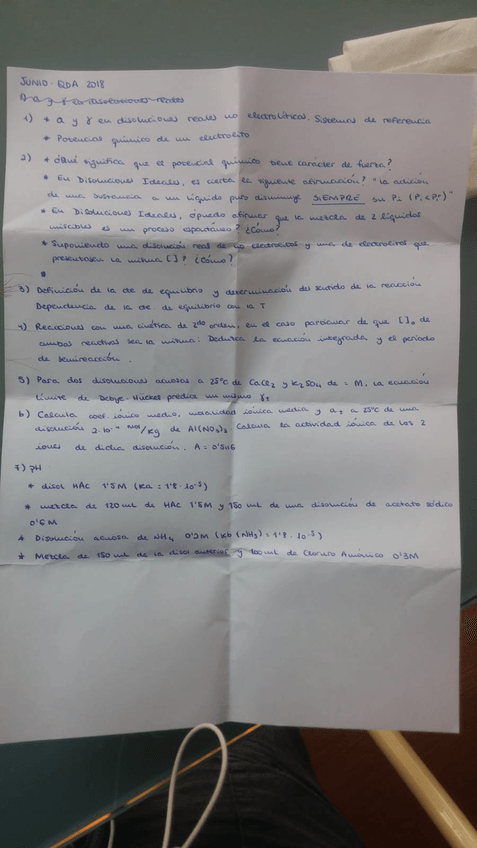 JUNIO - QDA 2018
1) a y γ en disoluciones reales
1) * a y γ en disoluciones reales no electrolíticas. Sistemas de referencia
* Potencial químico de un electrolito
2) * ¿Qué significa que el potencial químico tiene carácter de fuerza?
* En Disoluciones Ideales, es cierta la siguiente afirmación? "La adición
de una sustancia a un líquido puro disminuye SIEMPRE su Pi (Pi < Pi*)"
* En Disoluciones Ideales, ¿puedo afirmar que la mezcla de 2 líquidos
miscibles es un proceso espontáneo? ¿Cómo?
* Suponiendo una disolución real de no electrolitos y una de electrolitos que
presentasen la misma [ ]? ¿Cómo?
*
3) Definición de la cte de equilibrio y determinación del sentido de la reacción
Dependencia de la cte de equilibrio con la T.
4) Reacciones con una cinética de 2do orden, en el caso particular de que [ ]o de
ambos reactivos sea la misma: Deduzca la ecuación integrada y el periodo
de semirreacción.
5) Para dos disoluciones acuosas a 25ºC de CaCl2 y K2SO4 de = M, la ecuación
Límite de Debye-Hückel predice un mismo γ±
6) Calcula coef. iónico medio, molalidad iónica media y a± a 25ºC de una
disolución 2·10⁻⁴ mol/kg de Al(NO3)3 Calcula la actividad iónica de los 2
iones de dicha disolución. A = 0'5115
7) pH
* disol HAc 1'5M (Ka = 1'8·10⁻⁵)
* mezcla de 120 mL de HAc 1'5M y 150 mL de una disolución de acetato sódico
0'6M
* Disolución acuosa de NH4 0'2M (Kb (NH3) = 1'8·10⁻⁵)
* Mezcla de 150 mL de la disol anterior y 100 mL de Cloruro Amónico 0'3M